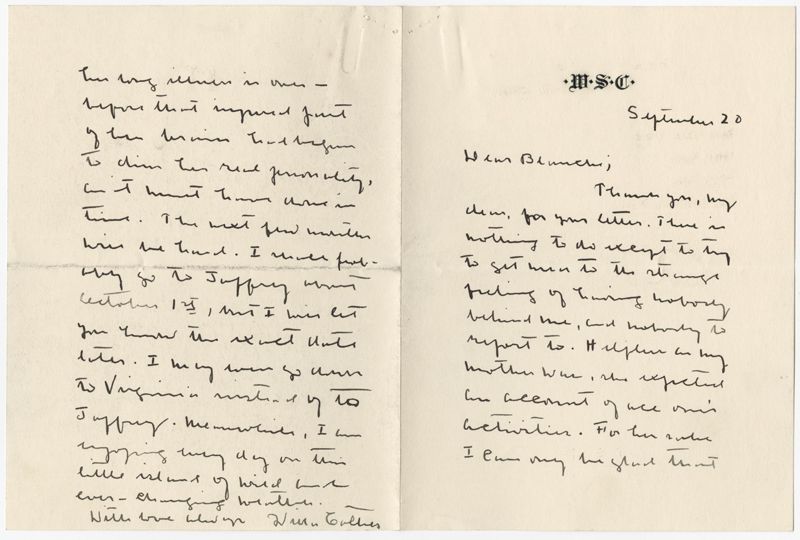 ·W·S·C·
September 20
Dear Blanche;
Thank you, my
dear, for your letter. There is
nothing to do except to try
to get used to the strange
feeling of having nobody
behind me, and nobody to
report to. Helpless as my
mother was, she expected
an account of all one's
activities. For her sake
I can only be glad that
her long illness is over —
before that injured part
of her brain had begun
to dim her real personality,
as it must have done in
time. The next few months
will be hard. I shall prob-
ably go to Jaffrey about
October 1st, but I will let
you know the exact date
later. I may even go down
to Virginia instead of to
Jaffrey. Meanwhile, I am
enjoying every day on this
little island of wild and
ever-changing weather.
With love always Willa Cather